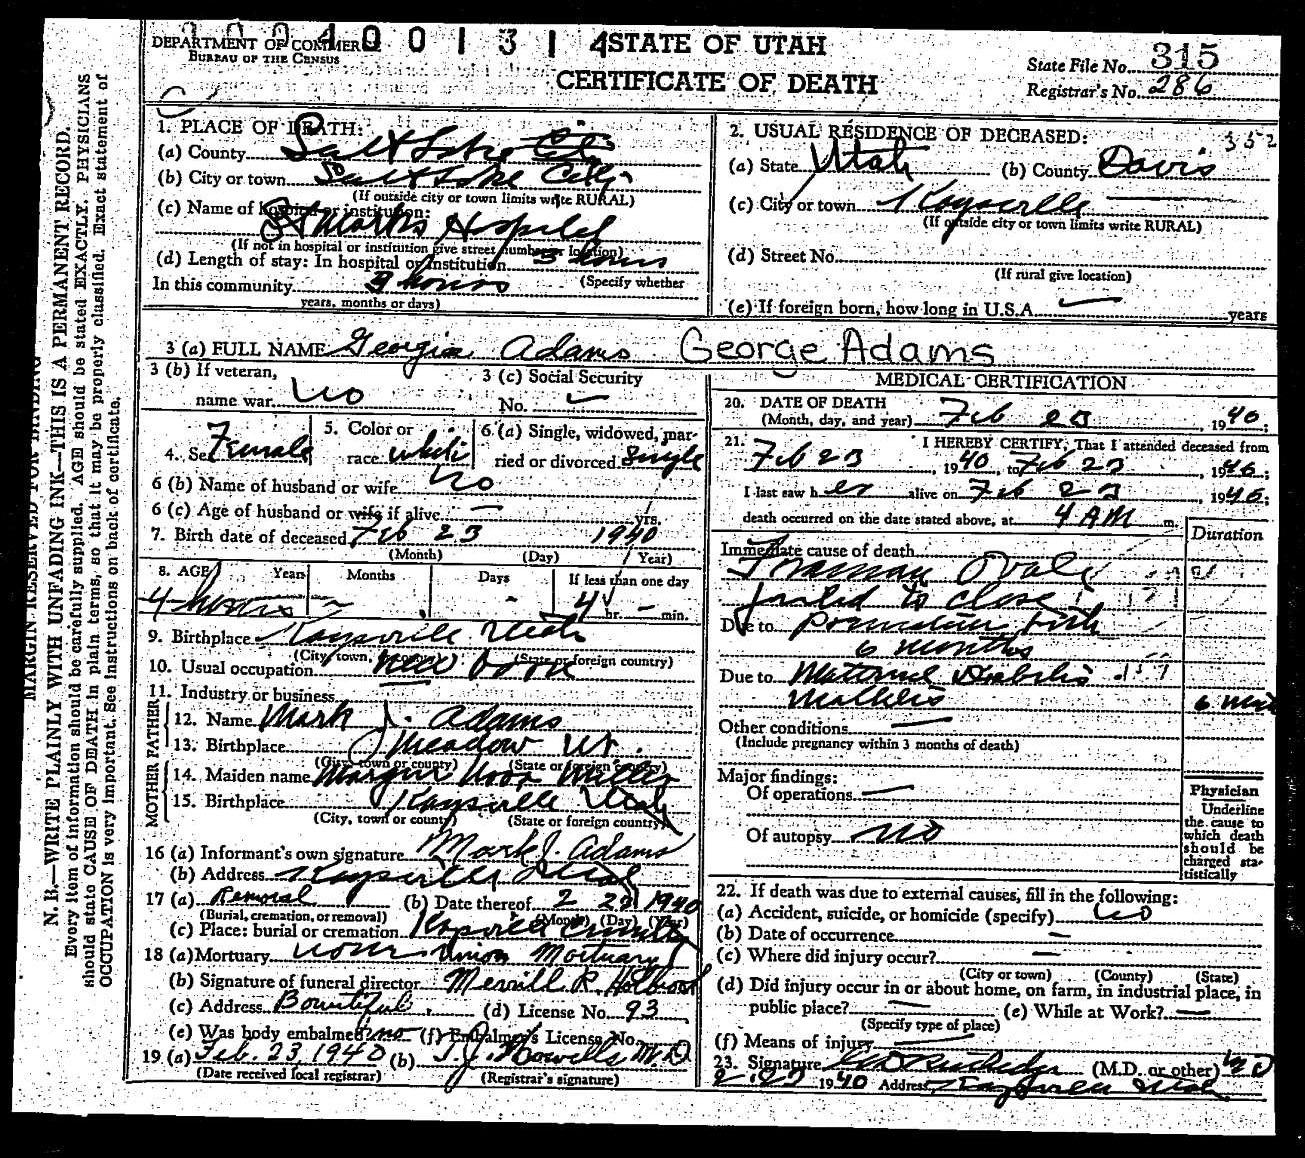 1004001314
DEPARTMENT OF COMMERCE
BUREAU OF THE CENSUS
STATE OF UTAH
CERTIFICATE OF DEATH
State File No. 315
Registrar's No. 286
MARGIN RESERVED FOR BINDING
N. B.—WRITE PLAINLY WITH UNFADING INK—THIS IS A PERMANENT RECORD.
Every item of information should be carefully supplied. AGE should be stated EXACTLY. PHYSICIANS
should state CAUSE OF DEATH in plain terms, so that it may be properly classified. Exact statement of
OCCUPATION is very important. See instructions on back of certificate.
1. PLACE OF DEATH:
(a) County Salt Lake City
(b) City or town Salt Lake City
(If outside city or town limits write RURAL)
(c) Name of hospital or institution:
St Marks Hospital
(If not in hospital or institution give street number or location)
(d) Length of stay: In hospital or institution 3 hours
In this community 3 hours (Specify whether
years, months or days)
2. USUAL RESIDENCE OF DECEASED: 352
(a) State Utah (b) County Davis
(c) City or town Kaysville
(If outside city or town limits write RURAL)
(d) Street No.
(If rural give location)
(e) If foreign born, how long in U.S.A. years
3 (a) FULL NAME Georgia Adams George Adams
3 (b) If veteran,
name war No
3 (c) Social Security
No. —
4. Sex Female
5. Color or
race white
6. (a) Single, widowed, mar-
ried or divorced Single
6 (b) Name of husband or wife No
6 (c) Age of husband or wife if alive — yrs.
7. Birth date of deceased Feb 23 1940
(Month) (Day) (Year)
8. AGE Years Months Days If less than one day
4 hours — - 4 hr. — min.
9. Birthplace Kaysville Utah
(City, town, or county) (State or foreign country)
10. Usual occupation new born
11. Industry or business
FATHER
12. Name Mark J. Adams
13. Birthplace Meadow Ut.
(City, town or county) (State or foreign country)
MOTHER
14. Maiden name Miller
15. Birthplace Kaysville Utah
(City, town or county) (State or foreign country)
16 (a) Informant's own signature Mark J. Adams
(b) Address Kaysville Utah
17 (a) Removal (b) Date thereof 2 23 1940
(Burial, cremation, or removal) (Month) (Day) (Year)
(c) Place: burial or cremation Kaysville
18 (a) Mortuary Union Mortuary
(b) Signature of funeral director Merrill R. Holbrook
(c) Address Bountiful. (d) License No. 93
(e) Was body embalmed? no (f) Embalmer's License No.
19 (a) Feb. 23, 1940 (b) T. J. Howells M.D.
(Date received local registrar) (Registrar's signature)
MEDICAL CERTIFICATION
20. DATE OF DEATH
(Month, day, and year) Feb 23, 1940;
21. I HEREBY CERTIFY, That I attended deceased from
Feb 23, 1940, to Feb 23, 1940;
I last saw her alive on Feb 23, 1940;
death occurred on the date stated above, at 4 AM m.
Duration
Immediate cause of death
Foramen Ovale
failed to close
Due to Premature birth
6 months
Due to Maternal Diabetis 159
Mellitis 6
Other conditions —
(Include pregnancy within 3 months of death)
Major findings:
Of operations —
Of autopsy no
Physician
Underline
the cause to
which death
should be
charged sta-
tistically
22. If death was due to external causes, fill in the following:
(a) Accident, suicide, or homicide (specify) no
(b) Date of occurrence —
(c) Where did injury occur? —
(City or town) (County) (State)
(d) Did injury occur in or about home, on farm, in industrial place, in
public place? — (e) While at Work? —
(Specify type of place)
(f) Means of injury —
23. Signature (M.D. or other) MD
1940 Address Kaysville Utah